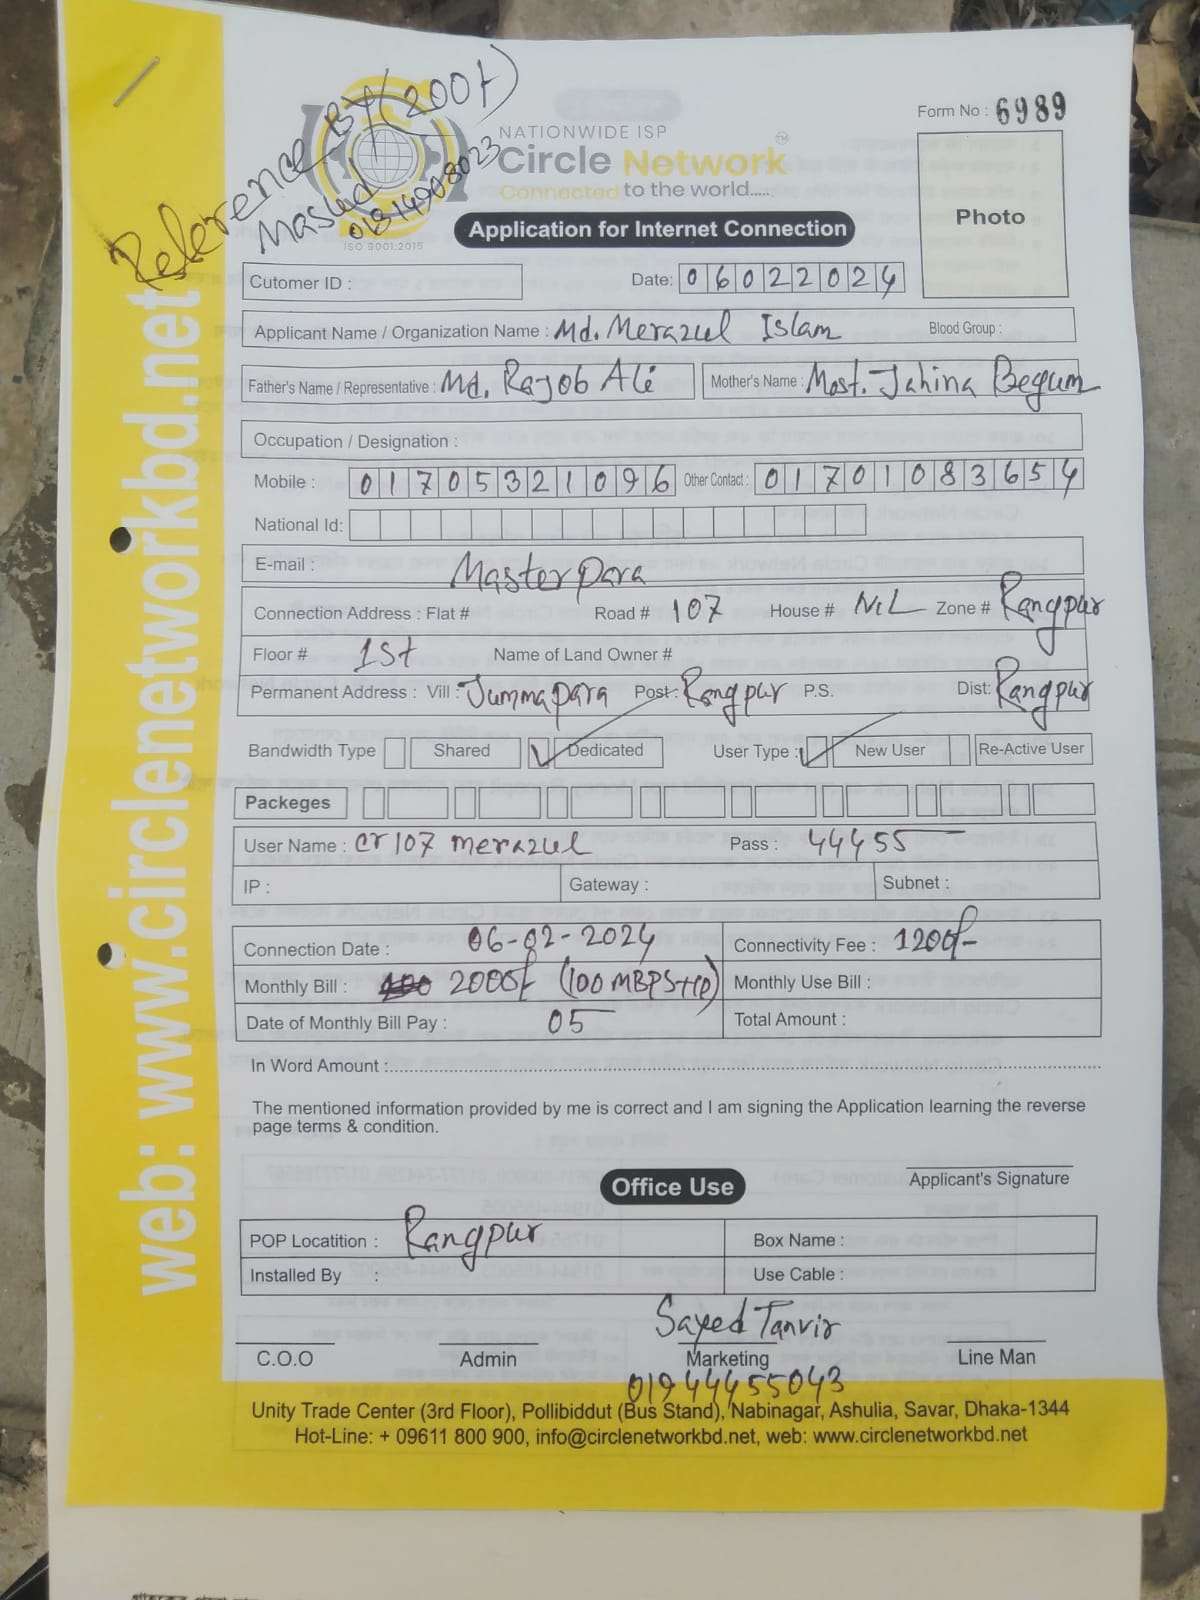 Reference By (200/-)
Masud
01814908023
NATIONWIDE ISP
Circle Network TM
Connected to the world.....
ISO 9001:2015
Form No : 6989
Photo
Application for Internet Connection
Cutomer ID :
Date: 06022024
Applicant Name / Organization Name : Md. Merazul Islam Blood Group :
Father's Name / Representative : Md. Rajob Ali Mother's Name : Most. Jahina Begum
Occupation / Designation :
Mobile : 01705321096 Other Contact : 01701083654
National Id:
E-mail :
Masterpara
Connection Address : Flat # Road # 107 House # NIL Zone # Rangpur
Floor # 1st Name of Land Owner #
Permanent Address : Vill : Jummapara Post: Rangpur P.S. Dist: Rangpur
Bandwidth Type Shared Dedicated User Type : New User Re-Active User
Packeges
User Name : cr107 merazul Pass : 44455
IP : Gateway : Subnet :
Connection Date : 06-02-2024 Connectivity Fee : 1200/-
Monthly Bill : 2000/- (100 MBPS+IP) Monthly Use Bill :
Date of Monthly Bill Pay : 05 Total Amount :
In Word Amount :
The mentioned information provided by me is correct and I am signing the Application learning the reverse
page terms & condition.
Applicant's Signature
Office Use
POP Locatition : Rangpur Box Name :
Installed By : Use Cable :
Sayed Tanvir
C.O.O Admin Marketing Line Man
01944455043
Unity Trade Center (3rd Floor), Pollibiddut (Bus Stand), Nabinagar, Ashulia, Savar, Dhaka-1344
Hot-Line: + 09611 800 900, info@circlenetworkbd.net, web: www.circlenetworkbd.net
web: www.circlenetworkbd.net